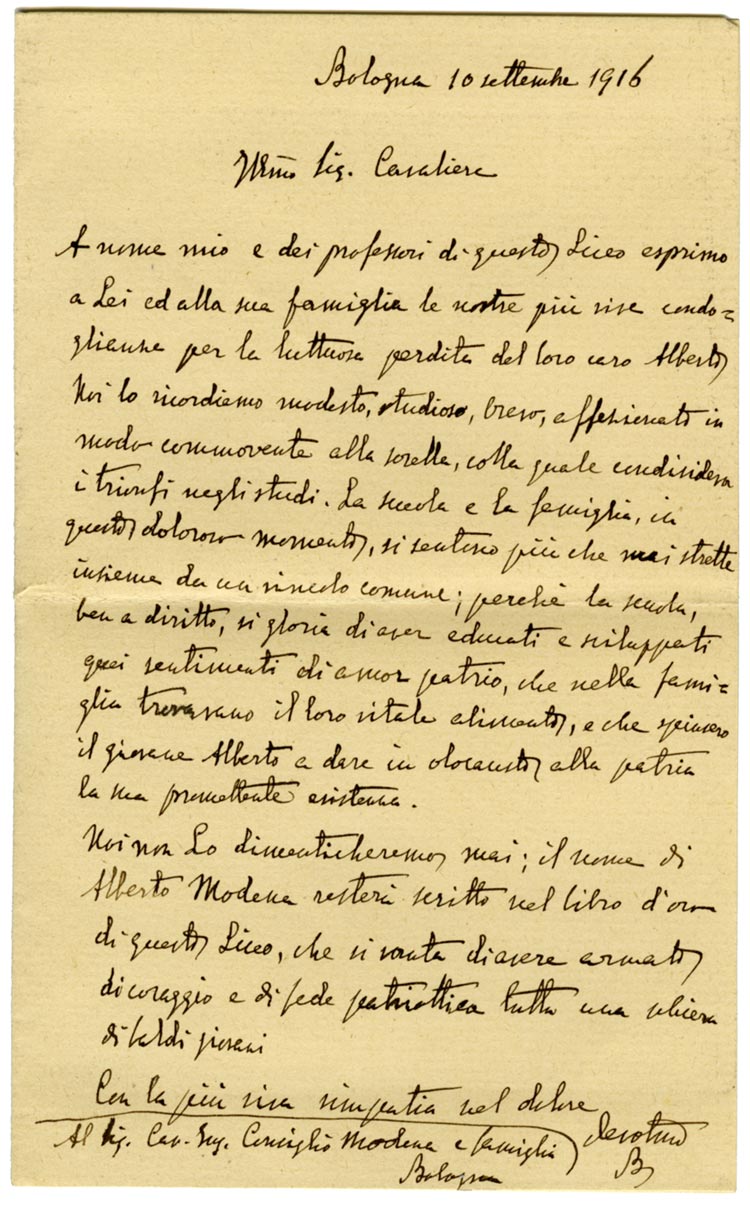 Bologna 10 settembre 1916
Illmo Sig. Cavaliere
A nome mio e dei professori di questo Liceo esprimo
a Lei ed alla sua famiglia le nostre più vive condo=
glianze per la luttuosa perdita del loro caro Alberto
Noi lo ricordiamo modesto, studioso, bravo, affezionato in
modo commovente alla sorella, colla quale condivideva
i trionfi negli studi. La scuola e la famiglia, in
questo doloroso momento, si sentono più che mai strette
insieme da un vincolo comune; perchè la scuola,
ben a diritto, si gloria di aver educati e sviluppati
quei sentimenti di amor patrio, che nella fami=
glia trovavano il loro vitale alimento, e che spinsero
il giovane Alberto a dare in olocausto alla patria
la sua promettente esistenza.
Noi non Lo dimenticheremo mai; il nome di
Alberto Modena resterà scritto nel libro d'oro
di questo Liceo, che si vanta di avere armato
di coraggio e di fede patriottica tutta una schiera
di baldi giovani
Con la più viva simpatia nel dolore
devotmo
Al Sig. Cav. Ing. Consiglio Modena e famiglia
Bologna
B